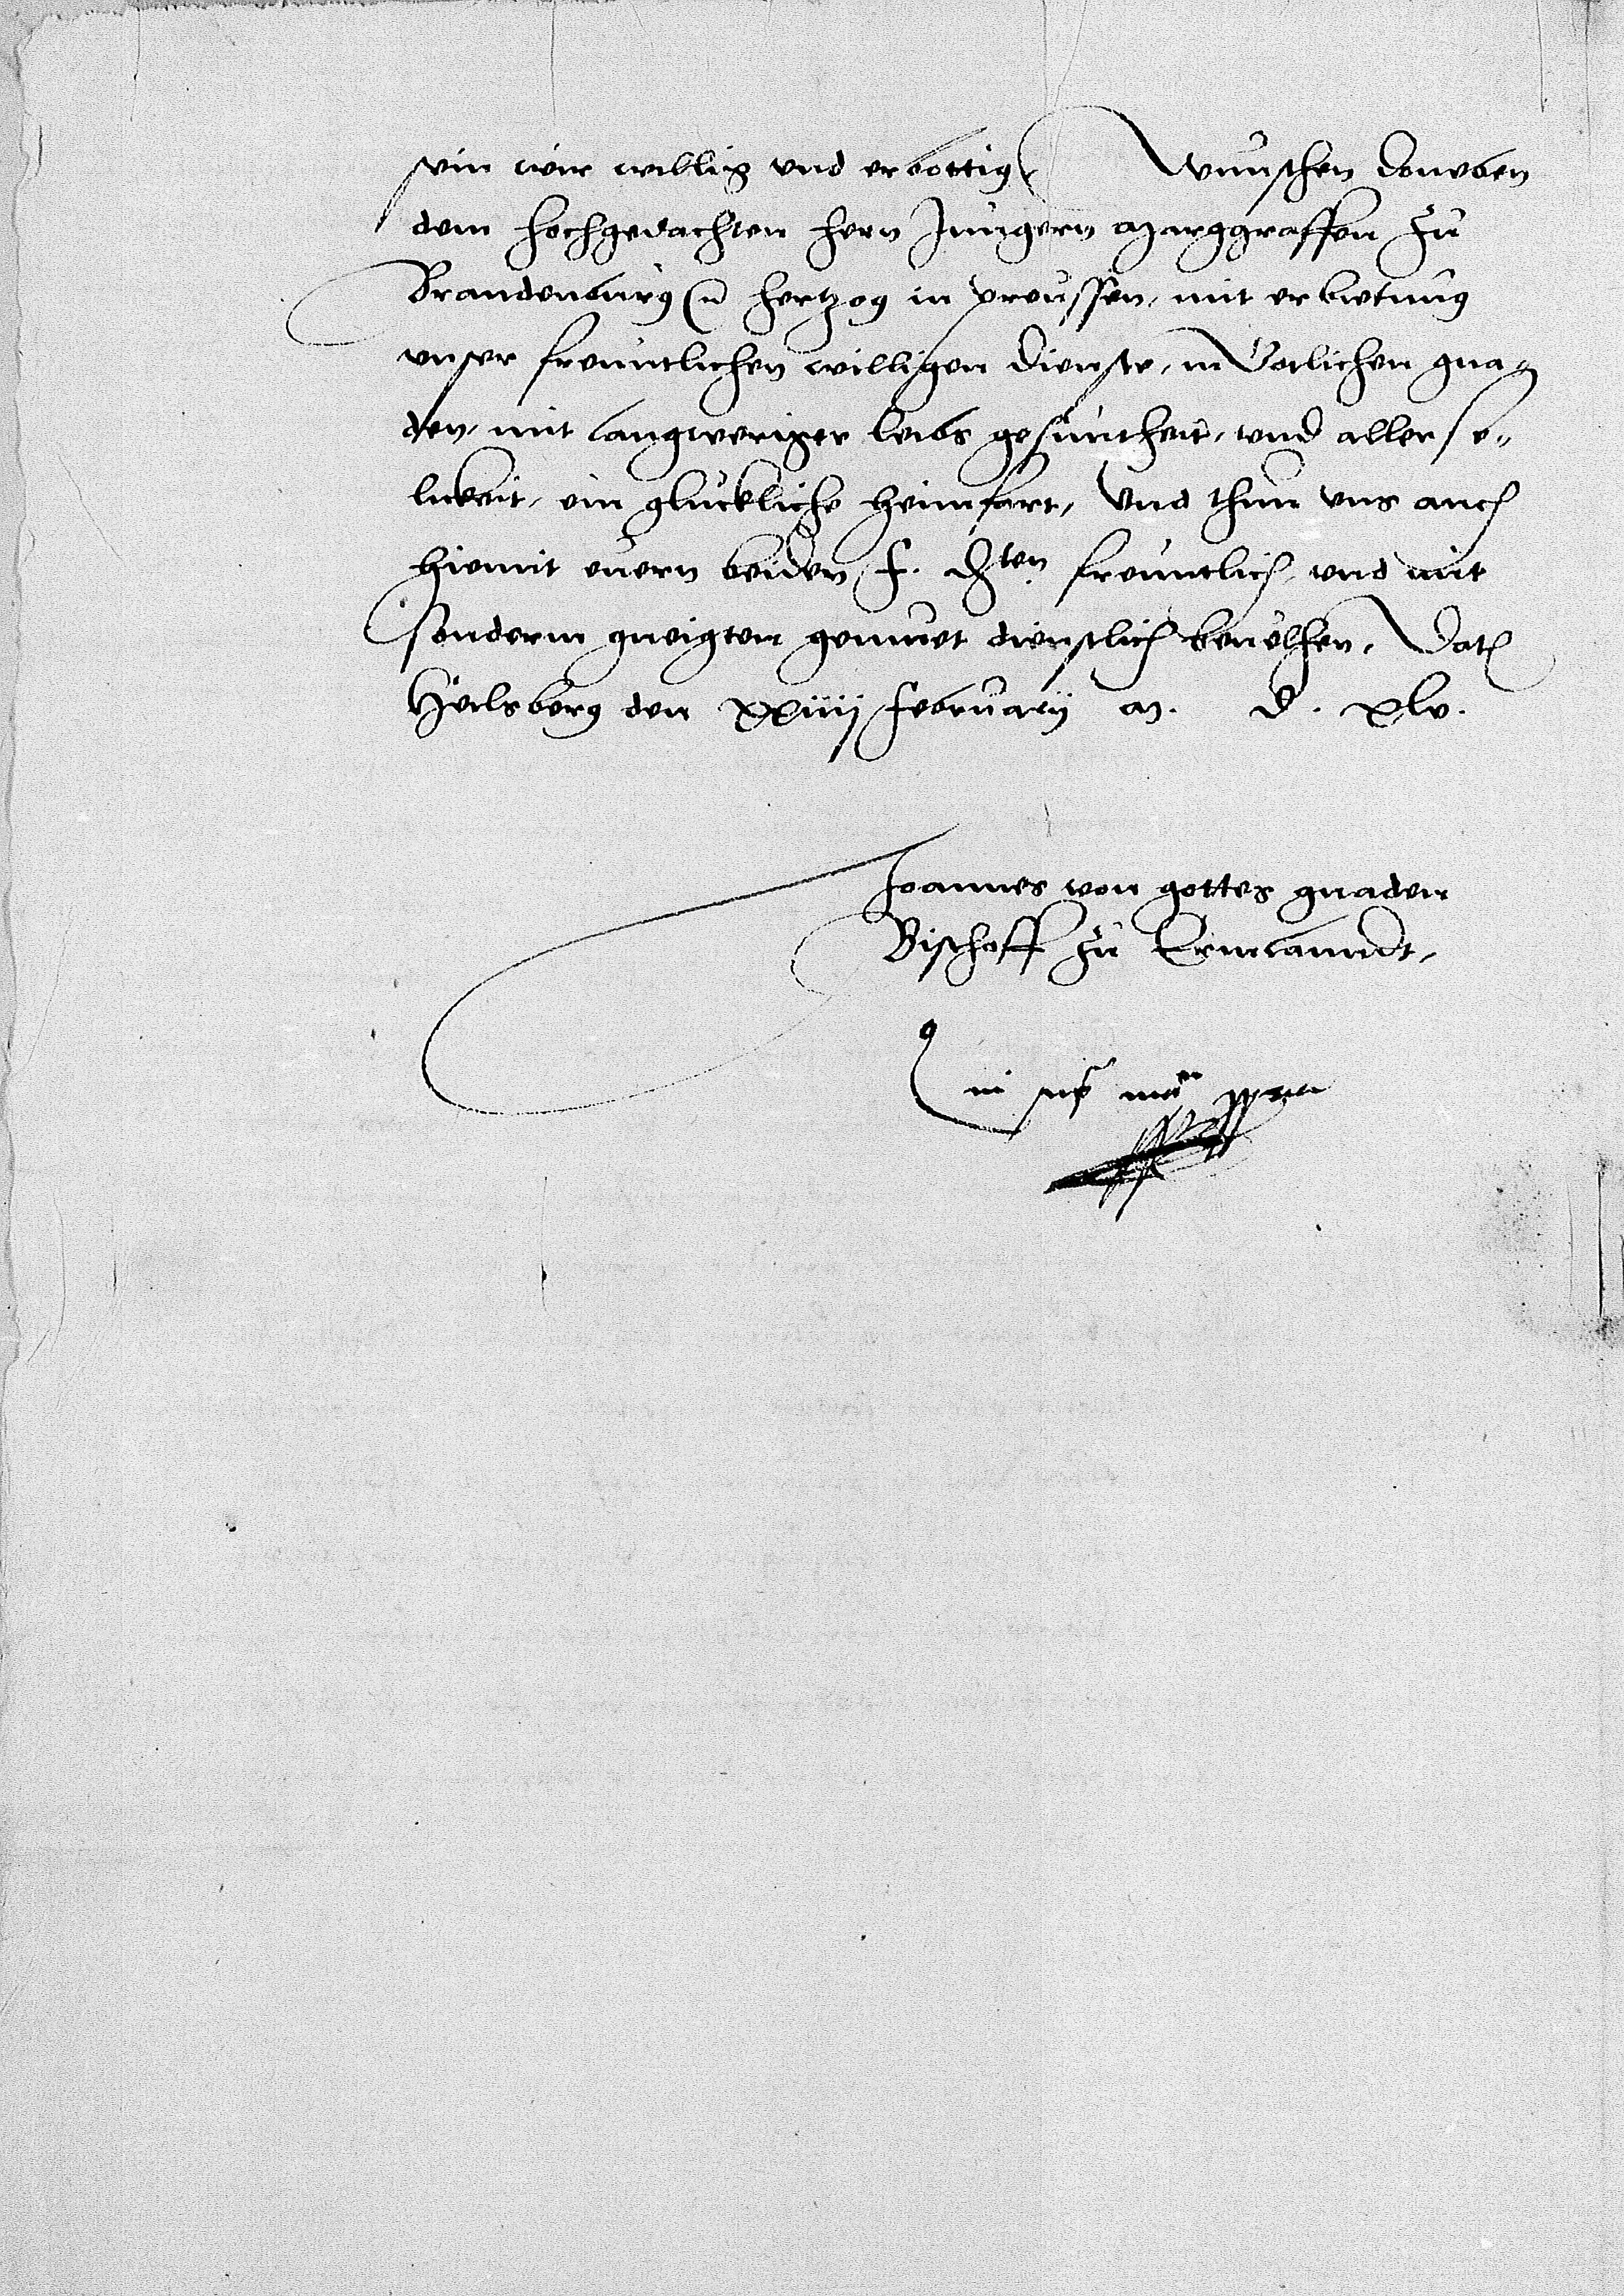 sein wir willig vnd erbottig Wunschen doneben
dem hochgedachten hern Jungern Marggraffen zu
Brandenburg hertzog in preussen, mit erbietung
vnser freuntlichen willigen dienste, in Gotlichen gna-
den, mit langweriger leibs gesuntheit, vnd aller se-
likeit, ein gluckliche heimfart, Vnd thun vns auch
hiemit euern beiden f. dten freuntlich, vnd mit
sonderm gneigten gemuet dienstlich beuelhen. Dat
Heilsberg den xxiiij february M. D. xlv.
Joannes von gottes gnaden
Bischoff zu Ermlanndt,